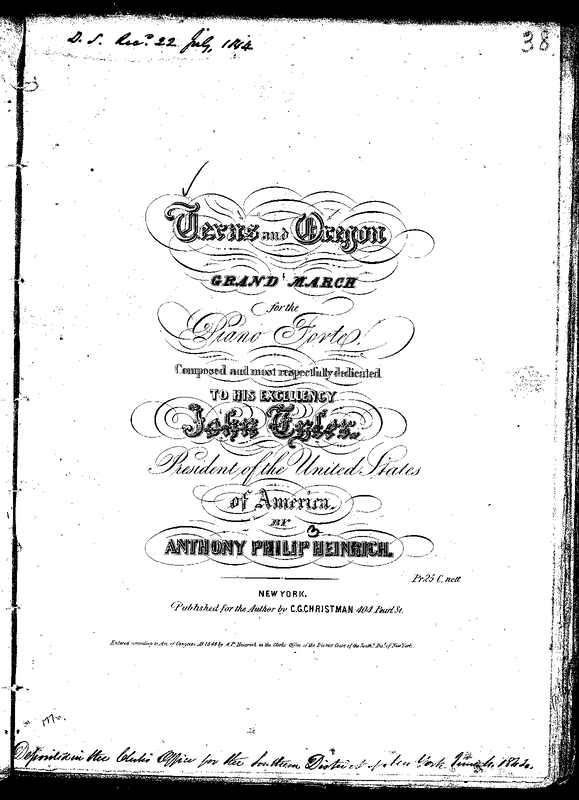 D. S. Recd. 22 July, 1844
38
Texas and Oregon
GRAND MARCH
for the
Piano Forte.
Composed and most respectfully dedicated
TO HIS EXCELLENCY
John Tyler.
President of the United States
of America.
BY
3
ANTHONY PHILIP HEINRICH.
Pr. 25 C. nett
NEW YORK.
Published for the Author by C.G. CHRISTMAN 404 Pearl St.
Entered according to Act of Congress AD 1844 by A.P. Heinrich in the Clerks Office of the District Court of the South.n Dis.t of New York.
Deposited in the Clerks Office for the Southern District of New York June 4, 1844.